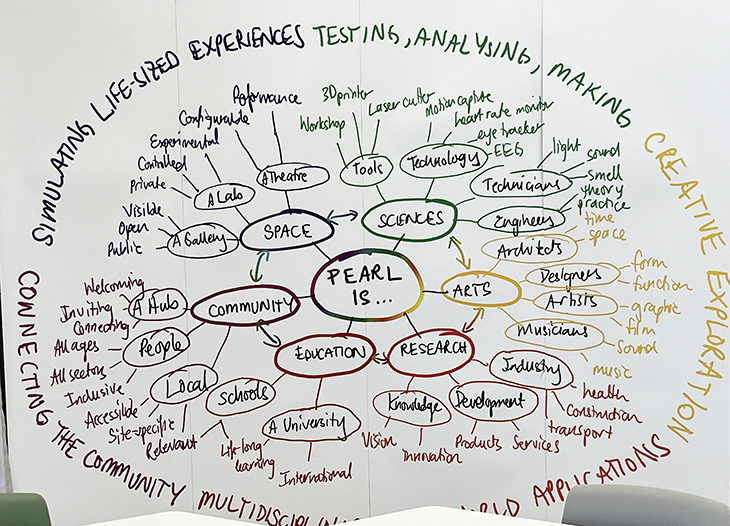 SIMULATING LIFE-SIZED EXPERIENCES
TESTING, ANALYSING, MAKING
CREATIVE EXPLORATION
CONNECTING THE COMMUNITY
APPLICATIONS
PEARL
IS...
SPACE
A Theatre
Peformance
Configurable
A Lab
Experimental
Controlled
Private
A Gallery
Visible
Open
Public
SCIENCES
Tools
Workshop
3D printer
Laser cutter
Technology
Motion capture
heart rate monitor
eye tracker
EEG
Technicians
light
sound
smell
Engineers
theory
practice
ARTS
Architects
time
space
Designers
form
function
Artists
graphic
film
Musicians
sound
music
RESEARCH
Industry
health
Construction
transport
Development
Products
Services
Knowledge
Vision
innovation
EDUCATION
Schools
Life-long
learning
A University
International
COMMUNITY
A Hub
Welcoming
Inviting
Connecting
People
All ages
All sectors
Inclusive
Local
Accessible
Site-specific
Relevant